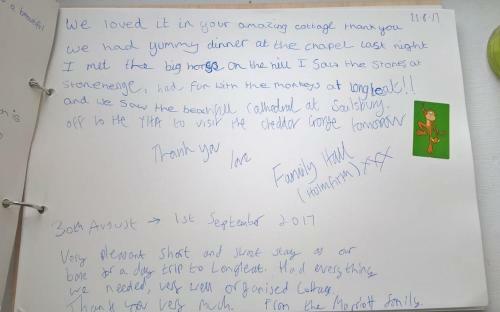 11.8.17
We loved it in your amazing cottage thank you
we had yummy dinner at the chapel last night
I met the big horse on the hill I saw the stones at
stonehenge, had fun with the monkeys at longleat!!
and we saw the beautifull Cathedral at Saulsbury.
off to the YHA to visit the cheddar Gorge tomorrow
Thank you
love
Family Hall
(Holmfirth) xxx
30th August → 1st September 2017
Very pleasant short and sweet stay as our
base for a day trip to Longleat. Had everything
we needed, very well organised cottage.
Thank you very much. From the Marriott family.